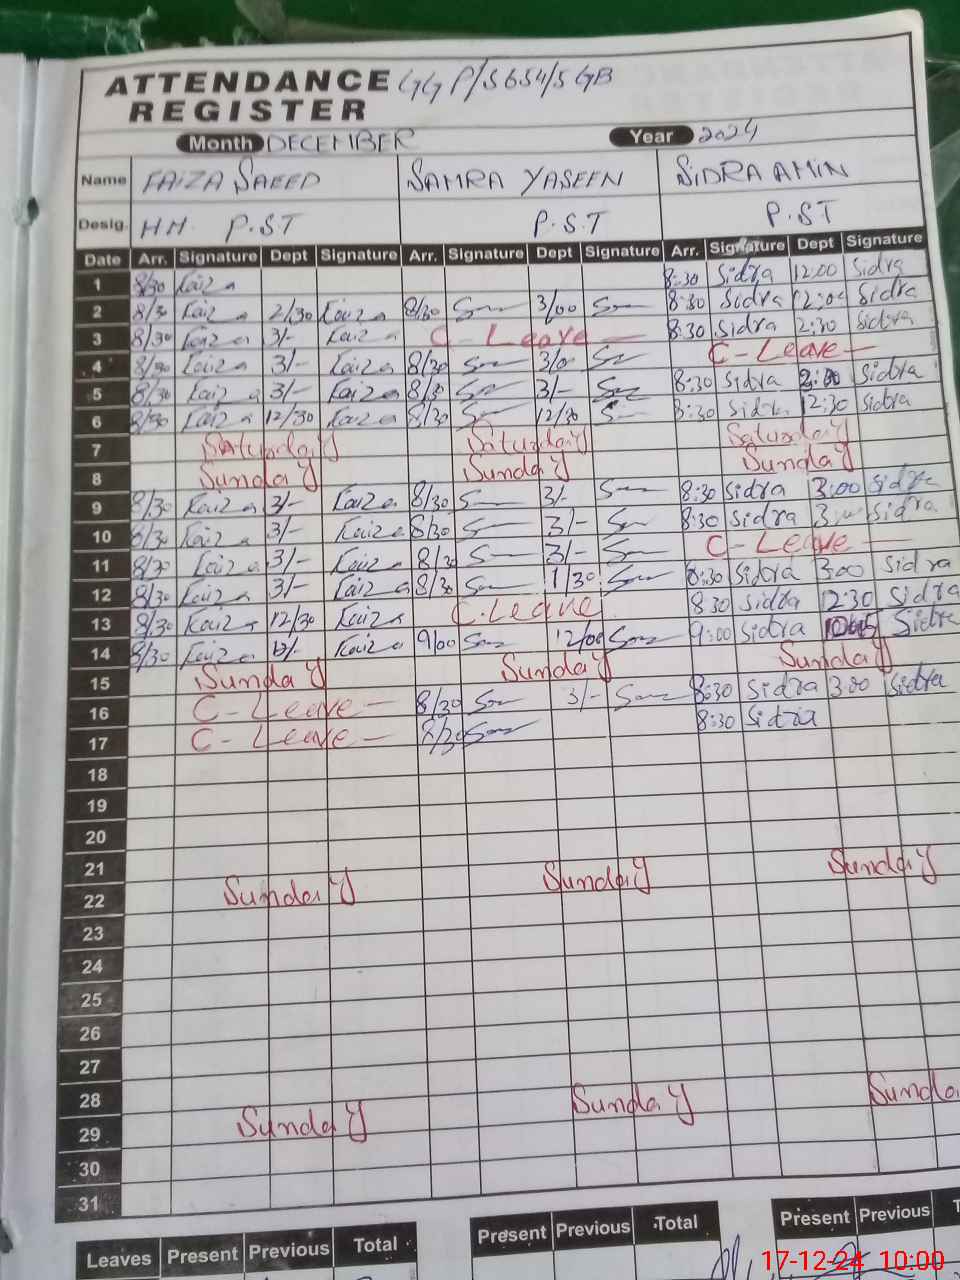 ATTENDANCE GGP/S654/5GB
REGISTER
Month DECEMBER Year 2024
Name FAIZA SAEED SAMRA YASEEN SIDRA AMIN
Desig. HM. P.ST P.S.T P.ST
Date Arr. Signature Dept Signature Arr. Signature Dept Signature Arr. Signature Dept Signature
1 8/30 Faiza 8:30 Sidra 12:00 Sidra
2 8/30 Faiza 2/30 Faiza 8/30 3/00 8:30 Sidra 12:00 Sidra
3 8/30 Faiza 3/- Faiza C-Leave 8:30 Sidra 2:30 Sidra
4 8/30 Faiza 3/- Faiza 8/30 3/0 C-Leave
5 8/30 Faiza 3/- Faiza 8/30 3/- 8:30 Sidra Sidra
6 8/30 Faiza 12/30 Faiza 8/30 12/30 8:30 Sidra 12:30 Sidra
7 Saturday Saturday Saturday
8 Sunday Sunday Sunday
9 8/30 Faiza 3/- Faiza 8/30 3/- 8:30 Sidra 3:00 Sidra
10 8/30 Faiza 3/- Faiza 8/30 3/- 8:30 Sidra Sidra
11 8/30 Faiza 3/- Faiza 8/30 3/- C-Leave
12 8/30 Faiza 3/- Faiza 8/30 1/30 8:30 Sidra 3:00 Sidra
13 8/30 Faiza 12/30 Faiza C.Leave 8:30 Sidra 12:30 Sidra
14 8/30 Faiza Faiza 9/00 12/00 9:00 Sidra Sidra
15 Sunday Sunday Sunday
16 C-Leave 8/30 3/- 8:30 Sidra 3:00 Sidra
17 C-Leave 8/30 8:30 Sidra
18
19
20
21
22 Sunday Sunday Sunday
23
24
25
26
27
28
29 Sunday Sunday Sunda
30
31
Leaves Present Previous Total Present Previous Total Present Previous T
17-12-24 10:00